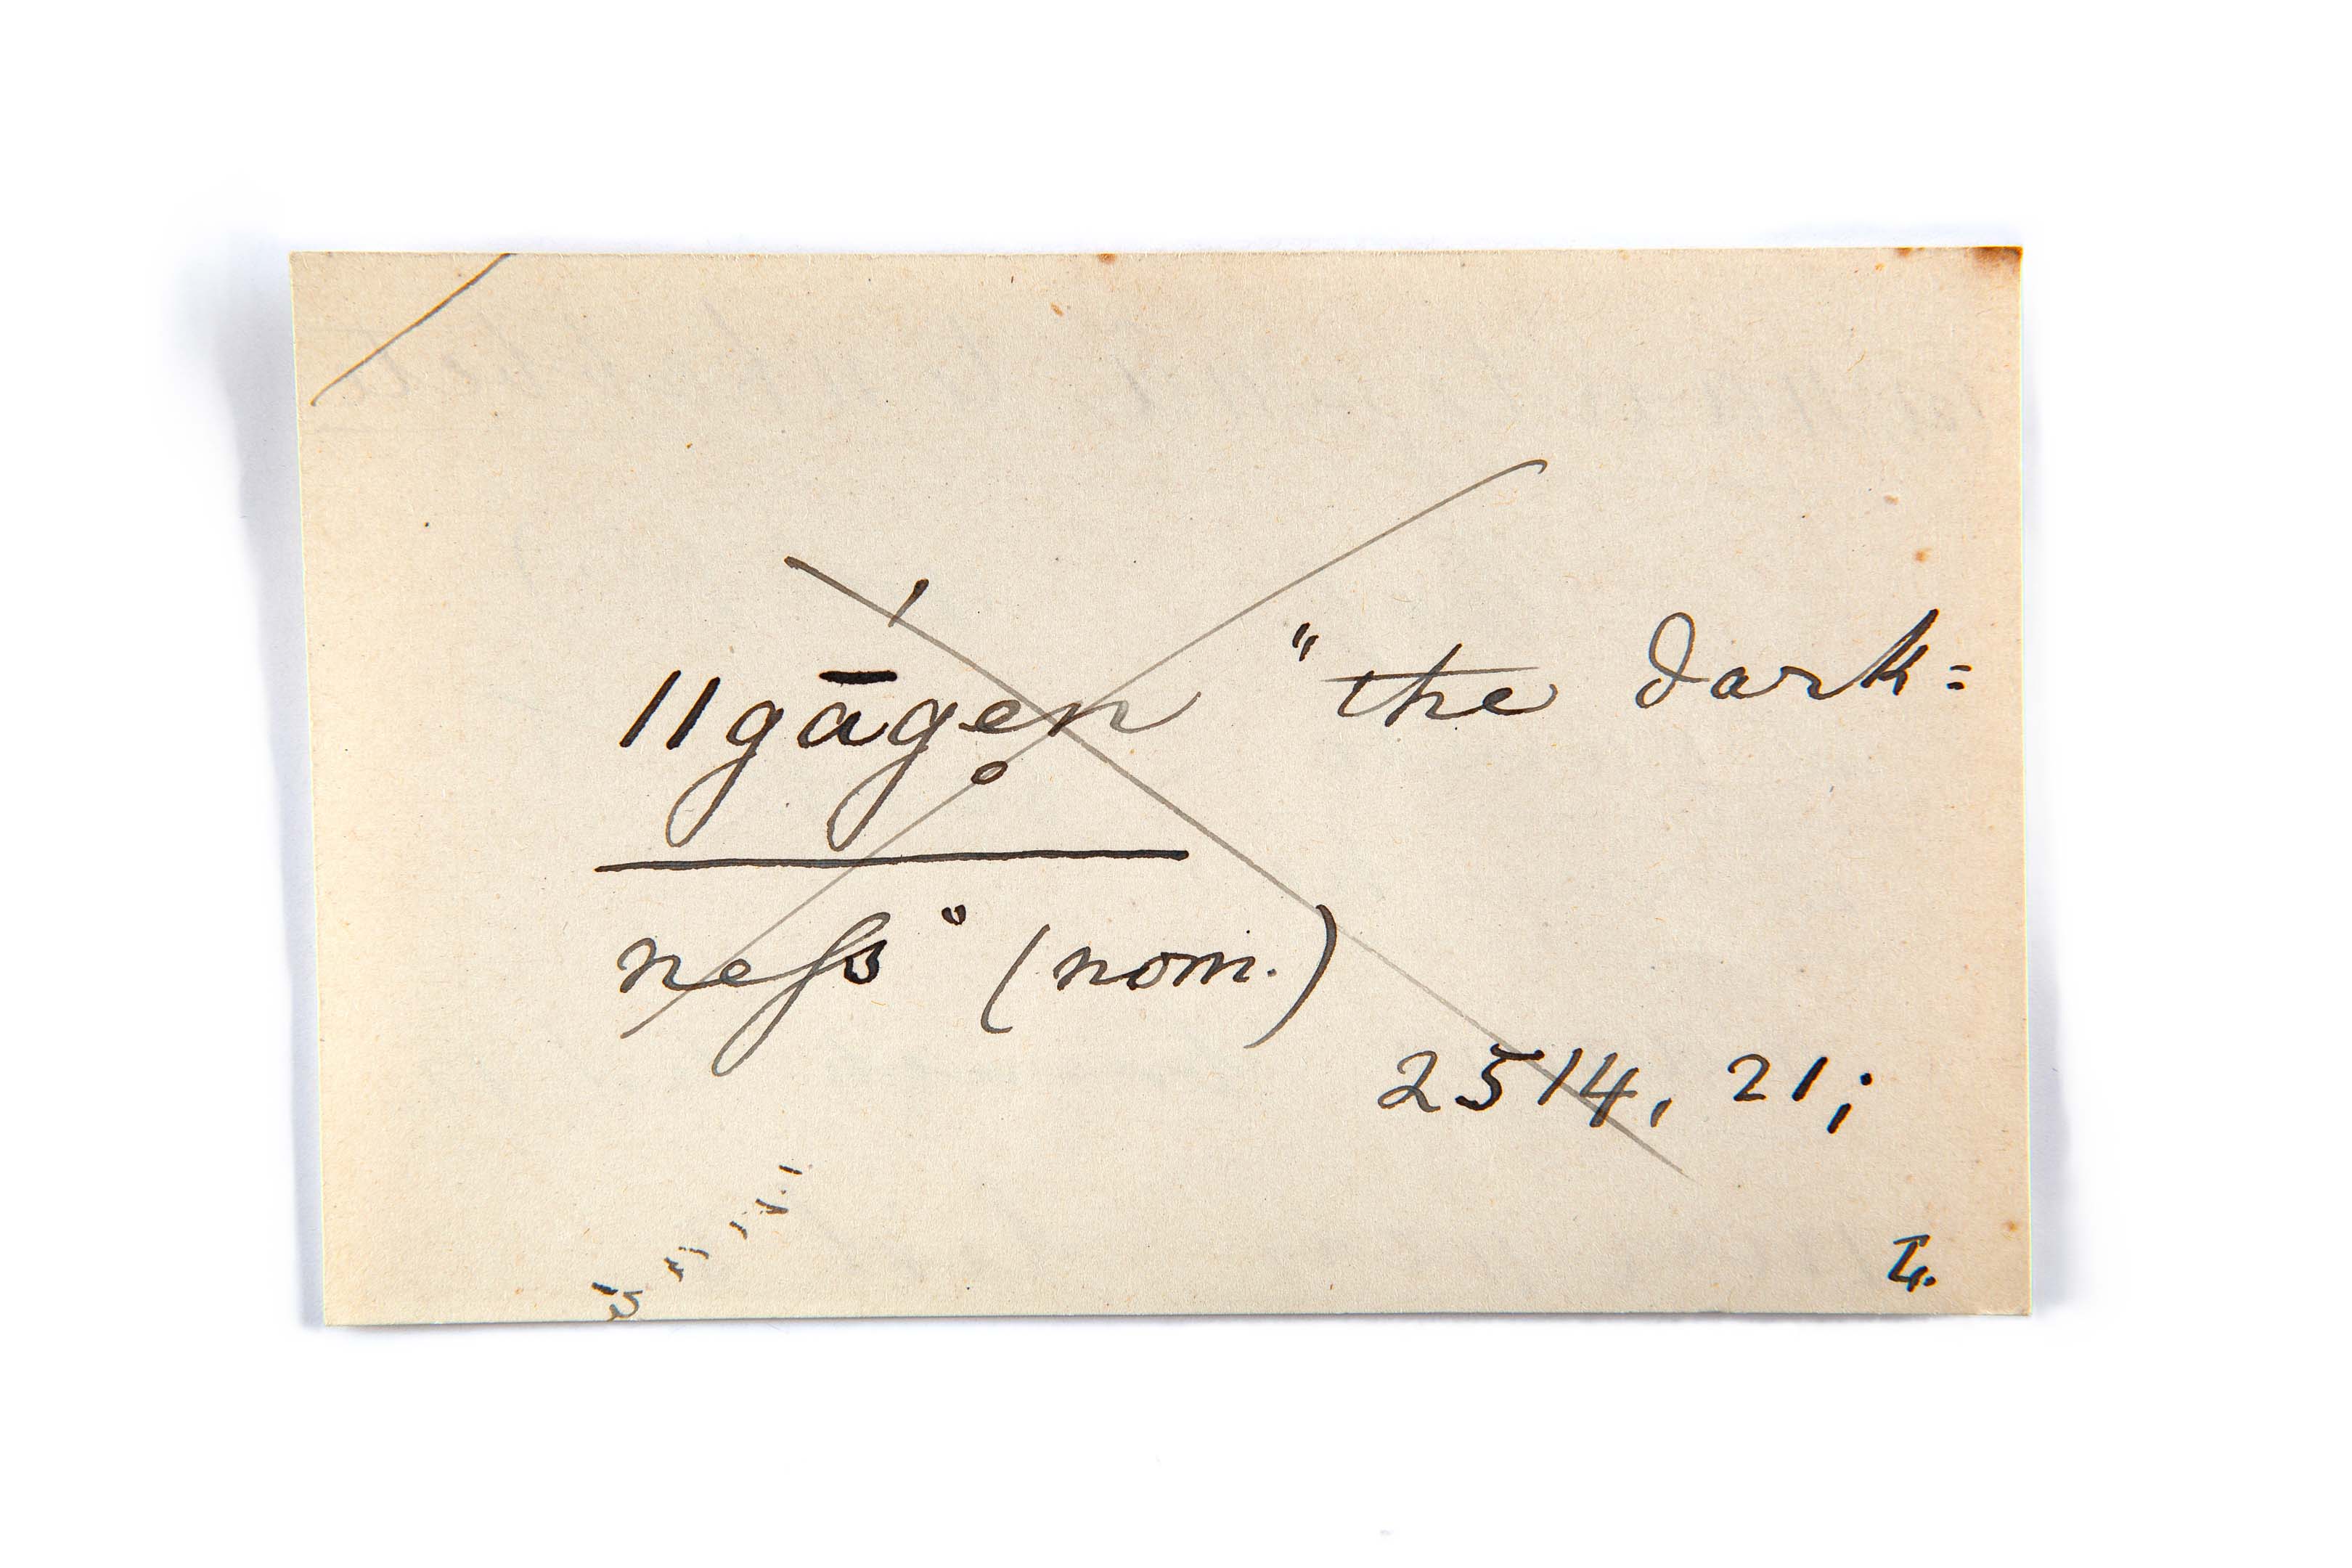 ǁgā́ge̥n "the dark=
neſs" (nom.)
2514, 21;
L.